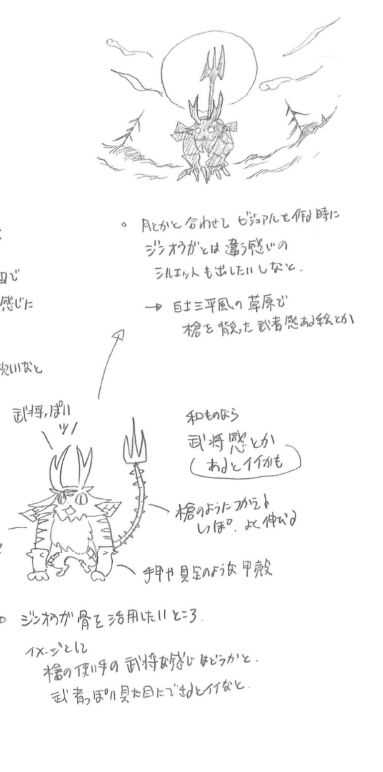 。月とかと合わせて ビジュアルを作る時に
ジンオウガとは違う感じの
シルエットも出したいしなと.
→ 白土三平風の草原で
槍を背負った武者感ある絵とか
で
感じに
いなと
武将っぽい
和ものなら
武将感とか
あるとイイかも
槍のようにつかえる
しっぽ. よく伸びる
手甲や具足のような甲殻
ジンオウガ骨を活用したいところ.
イメージとして
槍の使い手の武将な感じはどうかと.
武者っぽい見た目にできるとイイなと.